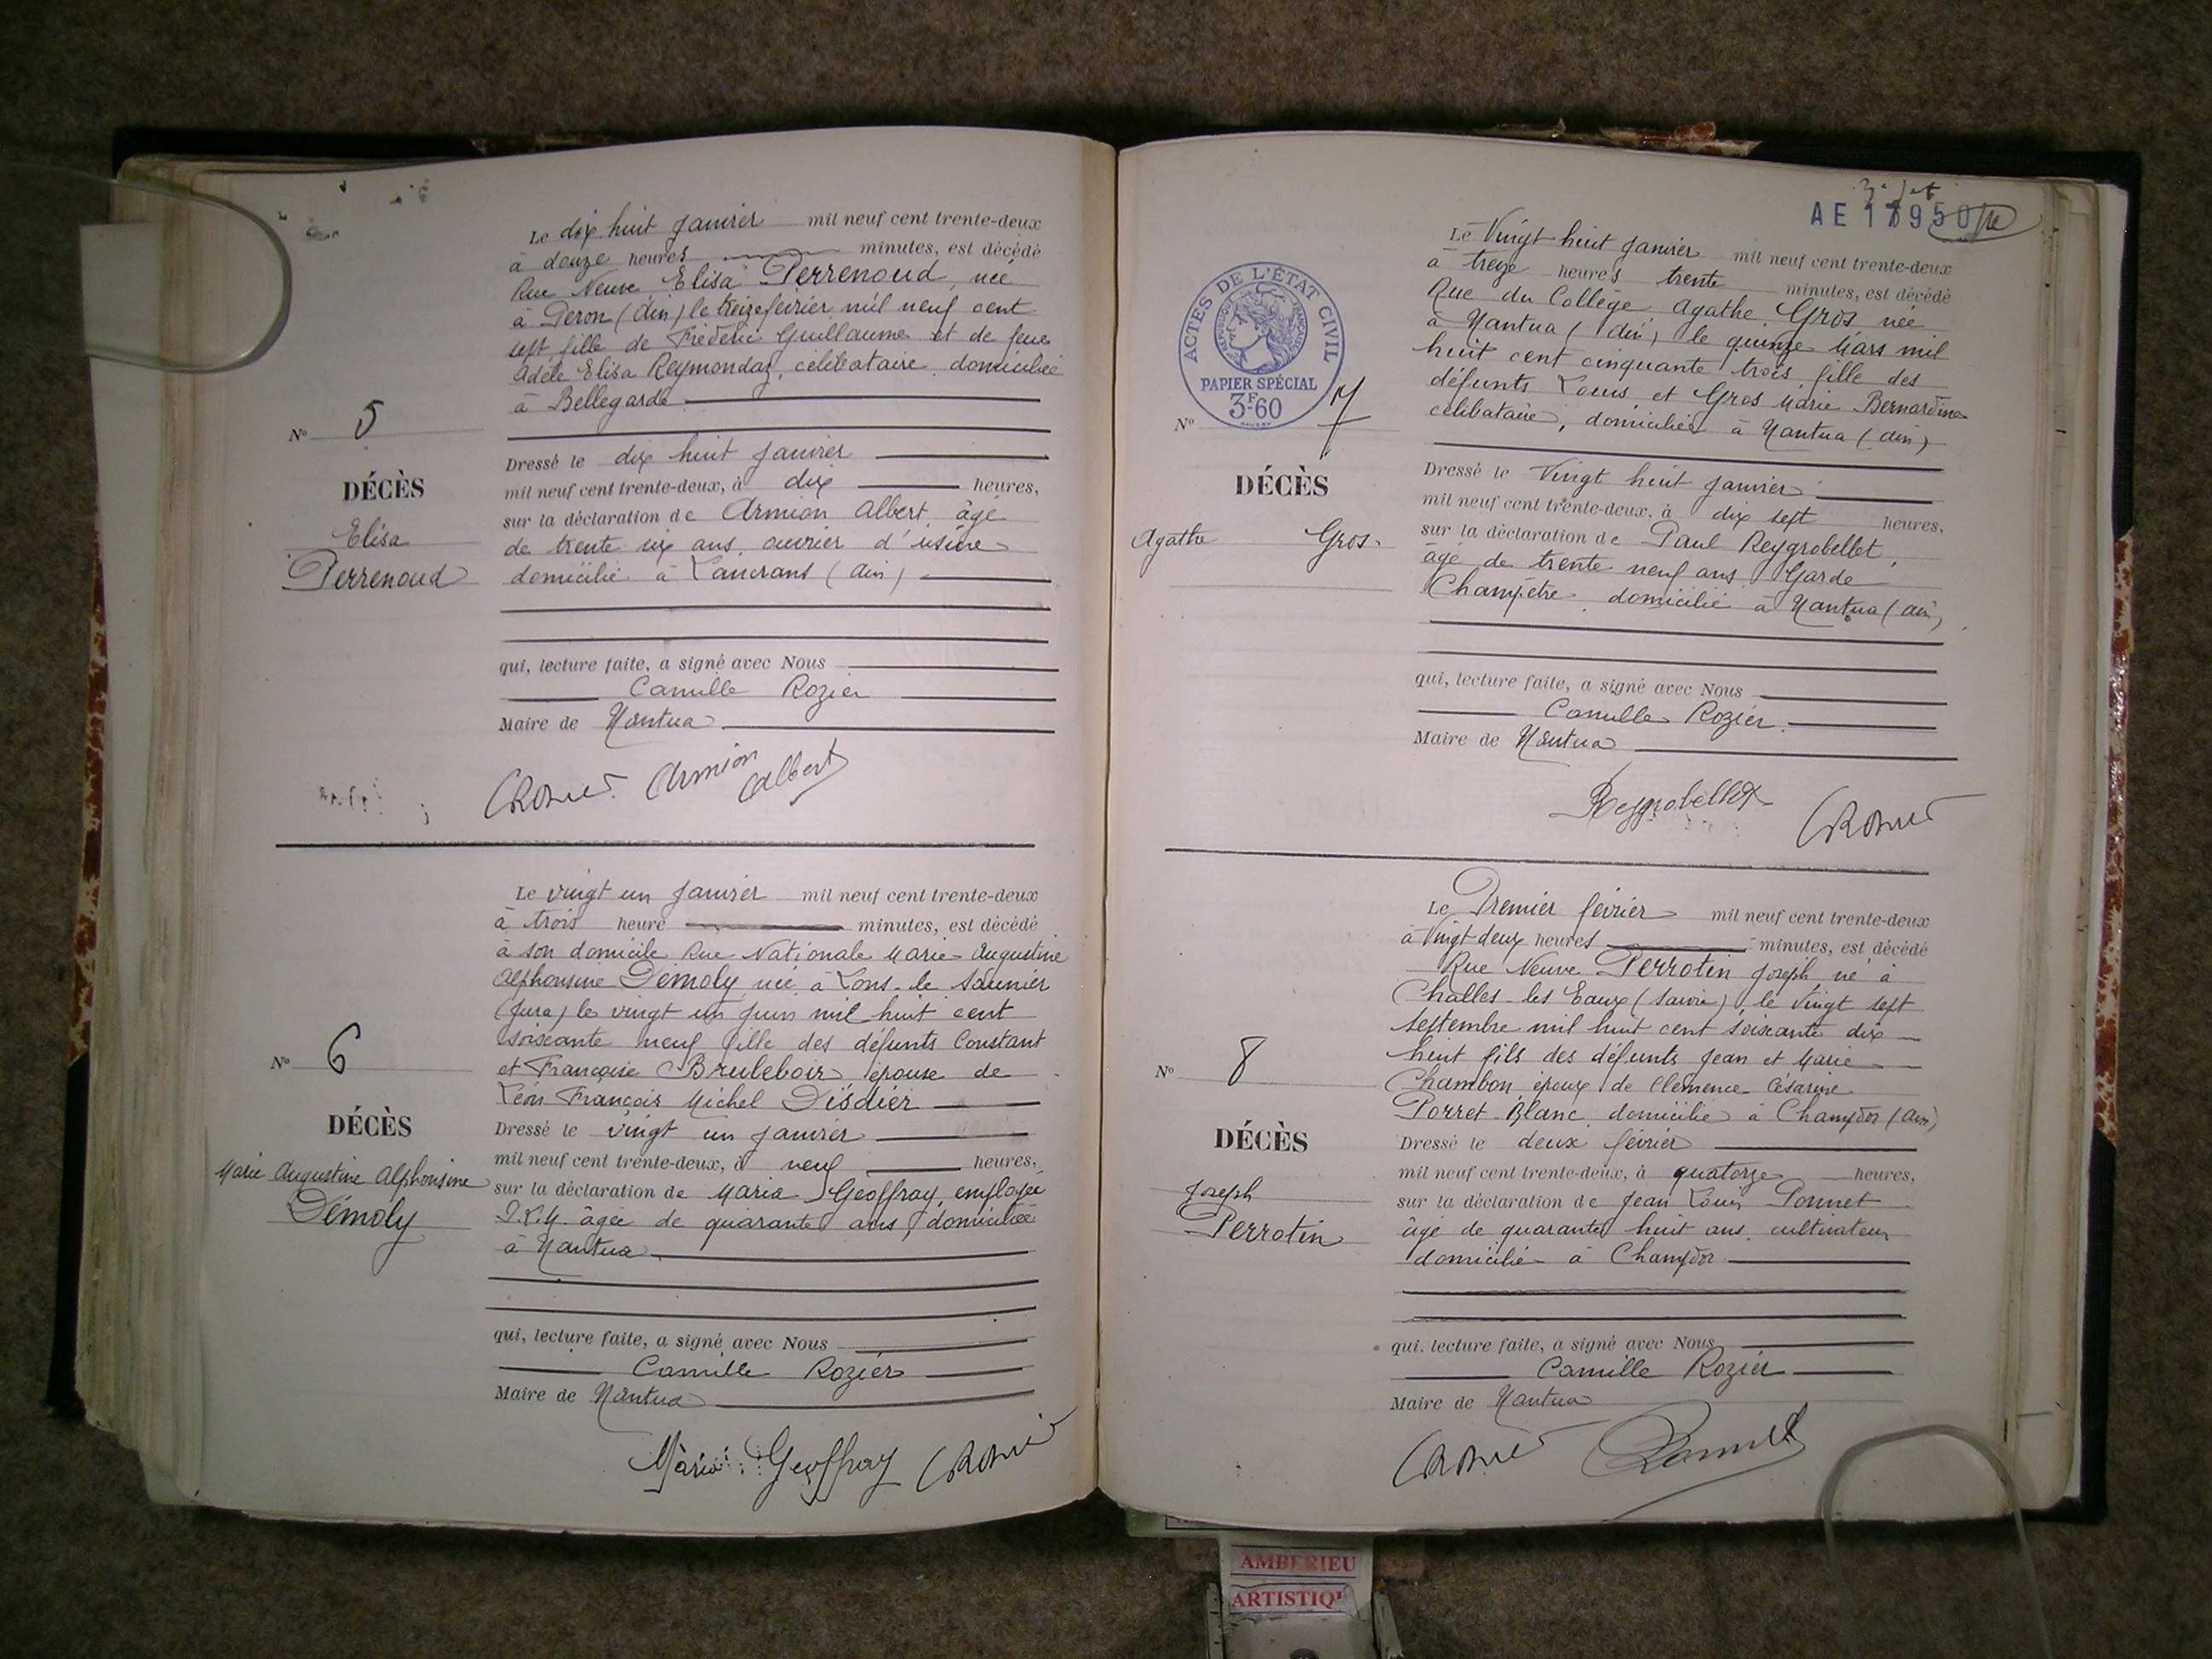 Le dix huit Janvier mil neuf cent trente-deux
à douze heures minutes, est décédé
Rue Neuve Elisa Perrenoud, née
à Peron (Ain) le treize février mil neuf cent
sept fille de Frédéric Guillaume et de feue
Adèle Elisa Reymondaz, célibataire, domiciliée
à Bellegarde
N° 5
DÉCÈS
Elisa
Perrenoud
Dressé le dix huit Janvier
mil neuf cent trente-deux, à dix heures,
sur la déclaration de Armion Albert, âgé
de trente six ans, ouvrier d'usine
domicilié à Lancrans (Ain)
qui, lecture faite, a signé avec Nous
Camille Rozier
Maire de Nantua
CRozier Armion
Albert
Le vingt un Janvier mil neuf cent trente-deux
à trois heure minutes, est décédé
à son domicile Rue Nationale Marie Augustine
Alphonsine Démoly, née à Lons-le Saunier
(Jura) le vingt un Juin mil huit cent
soixante neuf fille des défunts Constant
et Françoise Brulebois épouse de
Léon François Michel Disdier
N° 6
DÉCÈS
Marie Augustine Alphonsine
Démoly
Dressé le vingt un Janvier
mil neuf cent trente-deux, à neuf heures,
sur la déclaration de Maria Geoffray, employée
âgée de quarante ans, domiciliée
à Nantua
qui, lecture faite, a signé avec Nous
Camille Rozier
Maire de Nantua
Maria Geoffray CRozier
AE 17950
ACTES DE L'ÉTAT CIVIL
RÉPUBLIQUE FRANÇAISE
PAPIER SPÉCIAL
3F60
Le Vingt huit Janvier mil neuf cent trente-deux
à treize heures trente minutes, est décédé
Rue du Collège, Agathe Gros née
à Nantua (Ain) le quinze Mars mil
huit cent cinquante trois, fille des
défunts Louis et Gros Marie Bernardine
célibataire, domiciliée à Nantua (Ain)
N° 7
DÉCÈS
Agathe Gros
Dressé le Vingt huit Janvier
mil neuf cent trente-deux, à dix sept heures,
sur la déclaration de Paul Reygrobellet,
âgé de trente neuf ans, Garde
Champêtre, domicilié à Nantua (Ain)
qui, lecture faite, a signé avec Nous
Camille Rozier
Maire de Nantua
Reygrobellet CRozier
Le Premier février mil neuf cent trente-deux
à Vingt deux heures minutes, est décédé
Rue Neuve Perrotin Joseph, né à
Challes-les Eaux (Savoie), le vingt sept
septembre mil huit cent soixante dix
huit fils des défunts Jean et Marie
Chambon, époux de Clémence Césarine
Porret-Blanc, domicilié à Champdor (Ain)
N° 8
DÉCÈS
Joseph
Perrotin
Dressé le deux février
mil neuf cent trente-deux, à quatorze heures,
sur la déclaration de Jean Louis Ponnet
âgé de quarante huit ans, cultivateur
domicilié à Champdor
qui, lecture faite, a signé avec Nous
Camille Rozier
Maire de Nantua
CRozier Ponnet
AMBERIEU
ARTISTIQ